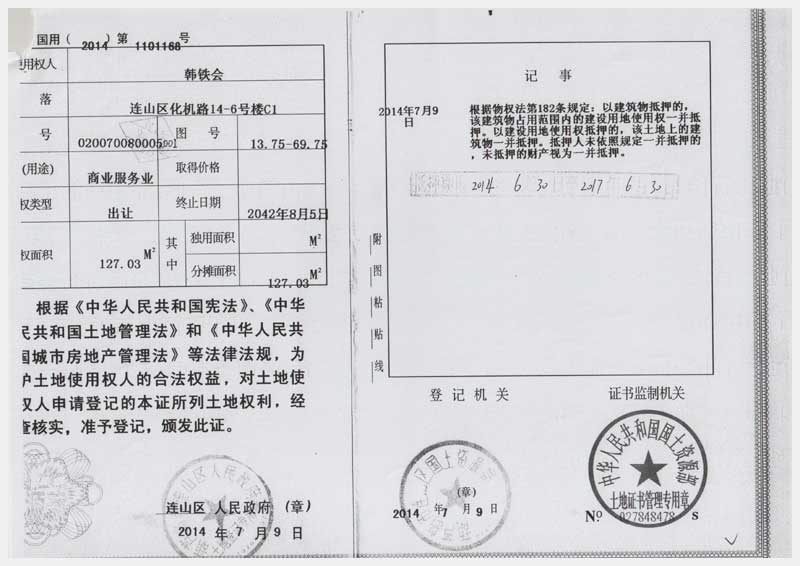 国用( 2014 )第 1101168 号
使用权人 韩铁会
落 连山区化机路14-6号楼C1
号 020070080005001 图 号 13.75-69.75
(用途) 商业服务业 取得价格
权类型 出让 终止日期 2042年8月5日
权面积 127.03 M² 其中 独用面积 M²
分摊面积 127.03 M²
根据《中华人民共和国宪法》、《中华
民共和国土地管理法》和《中华人民共
国城市房地产管理法》等法律法规，为
护土地使用权人的合法权益，对土地使
权人申请登记的本证所列土地权利，经
查核实，准予登记，颁发此证。
连山区 人民政府 (章)
2014 年 7 月 9 日
记 事
2014年7月9日
根据物权法第182条规定：以建筑物抵押的，
该建筑物占用范围内的建设用地使用权一并抵
押。以建设用地使用权抵押的，该土地上的建
筑物一并抵押。抵押人未依照规定一并抵押的
，未抵押的财产视为一并抵押。
2014 6 30 2017 6 30
附图粘贴线
登记机关
(章)
2014 年 7 月 9 日
证书监制机关
中华人民共和国国土资源部
土地证书管理专用章
Nº 027848478 s